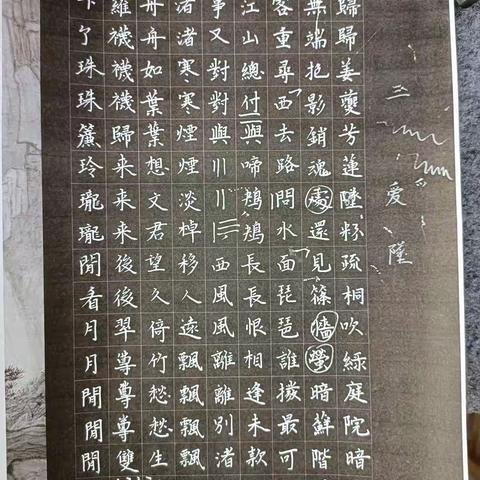 三愛
歸歸姜夔芳蓮墜粉疏桐吹綠庭院暗
無端抱影銷魂處還見篠牆螢暗蘚階
客重尋西去路問水面琵琶誰撥最可
江山總付與啼鴂鴂長長恨相逢未款
事又對對與川川三西風風離離別渚
渚渚寒寒煙煙淡棹移人遠飄飄飄飄
舟舟如葉葉想文君望久倚竹愁愁生
羅襪襪襪歸来来来後後翠尊尊尊雙
了珠珠簾玲瓏瓏閒看月月閒閒閒